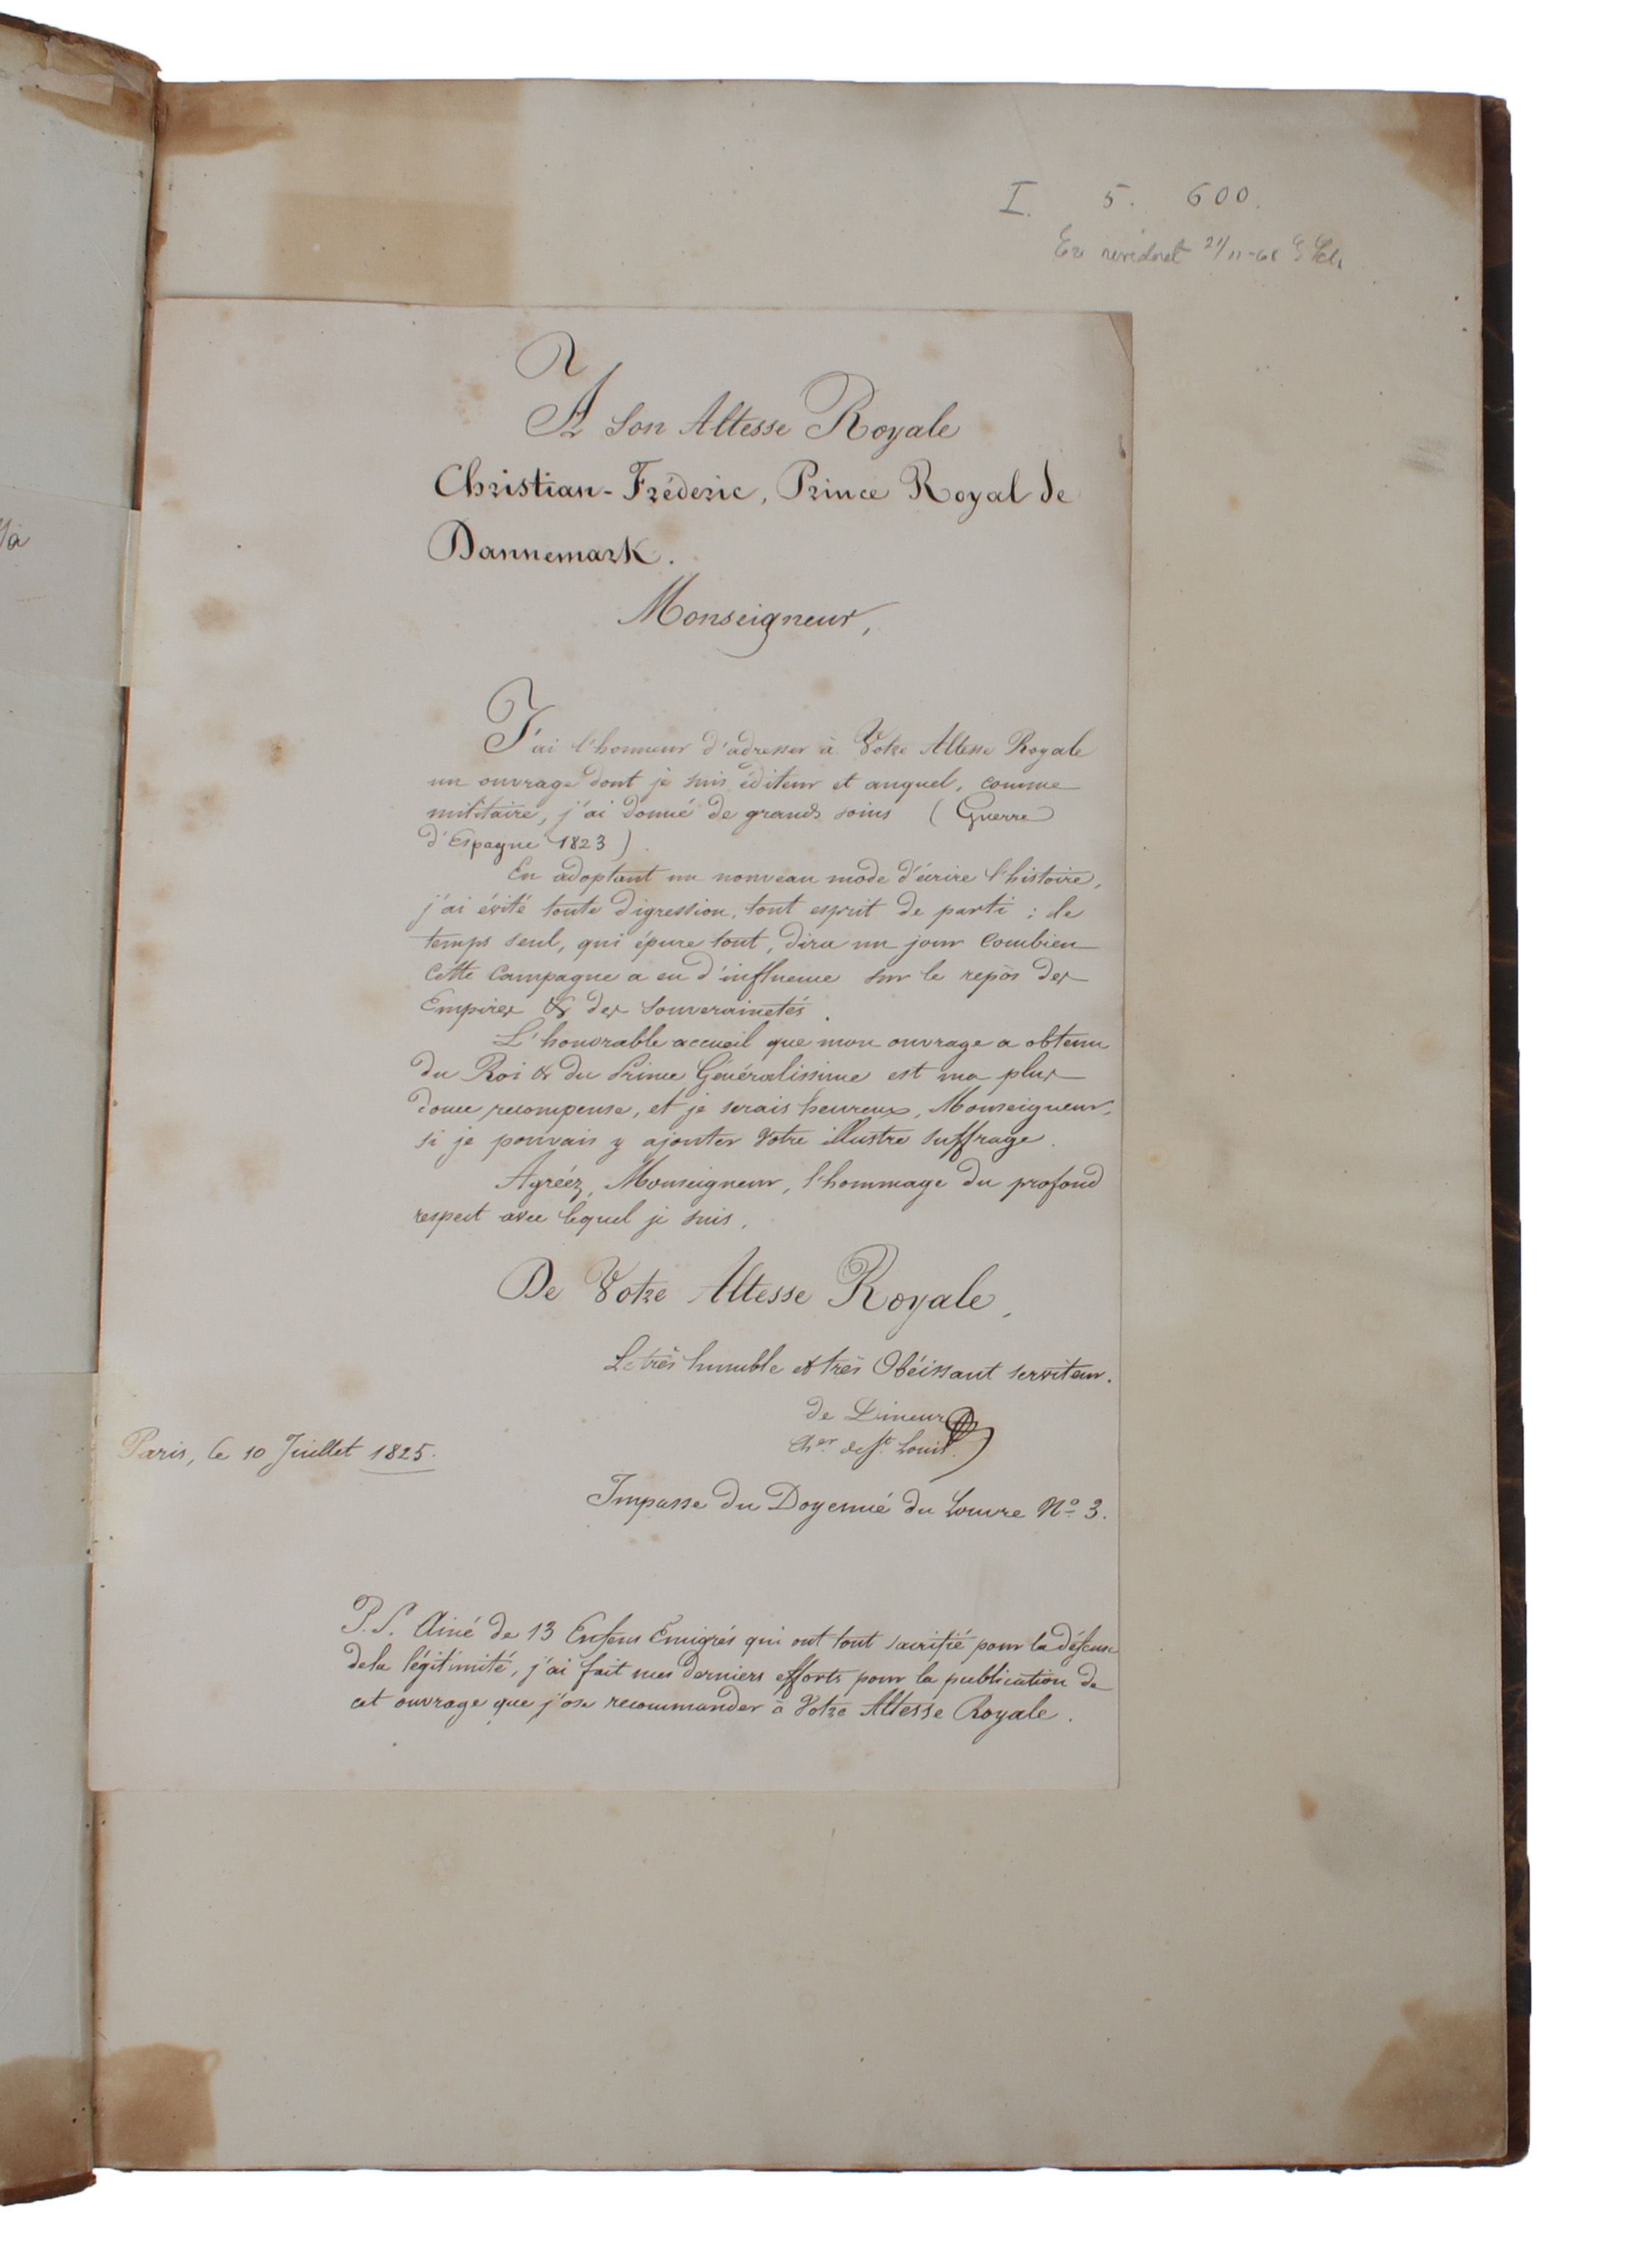 I. 5. 600.
Ex revideret 21/11-68
/a
A Son Altesse Royale
Christian-Fréderic, Prince Royal de
Dannemark.
Monseigneur,
J'ai l'honneur d'adresser à Votre Altesse Royale
un ouvrage dont je suis éditeur et auquel, comme
militaire, j'ai donné de grands soins (Guerre
d'Espagne 1823).
En adoptant un nouveau mode d'écrire l'histoire,
j'ai évité toute digression, tout esprit de parti : le
temps seul, qui épure tout, dira un jour combien
cette Campagne a eu d'influence sur le repos des
Empires & des Souverainetés.
L'honorable accueil que mon ouvrage a obtenu
du Roi & du Prince Généralissime est ma plus
douce recompense, et je serais heureux, Monseigneur,
si je pouvais y ajouter Votre illustre suffrage.
Agréez, Monseigneur, l'hommage du profond
respect avec lequel je suis,
De Votre Altesse Royale,
Le très humble et très Obéissant serviteur.
de
Cher de St. Louis.
Paris, le 10 Juillet 1825.
Impasse du Doyenné du Louvre No 3.
P.S. Ainé de 13 Enfens Émigrés qui ont tout sacrifié pour la défense
de la légitimité, j'ai fait mes derniers efforts pour la publication de
cet ouvrage que j'ose recommander à Votre Altesse Royale.